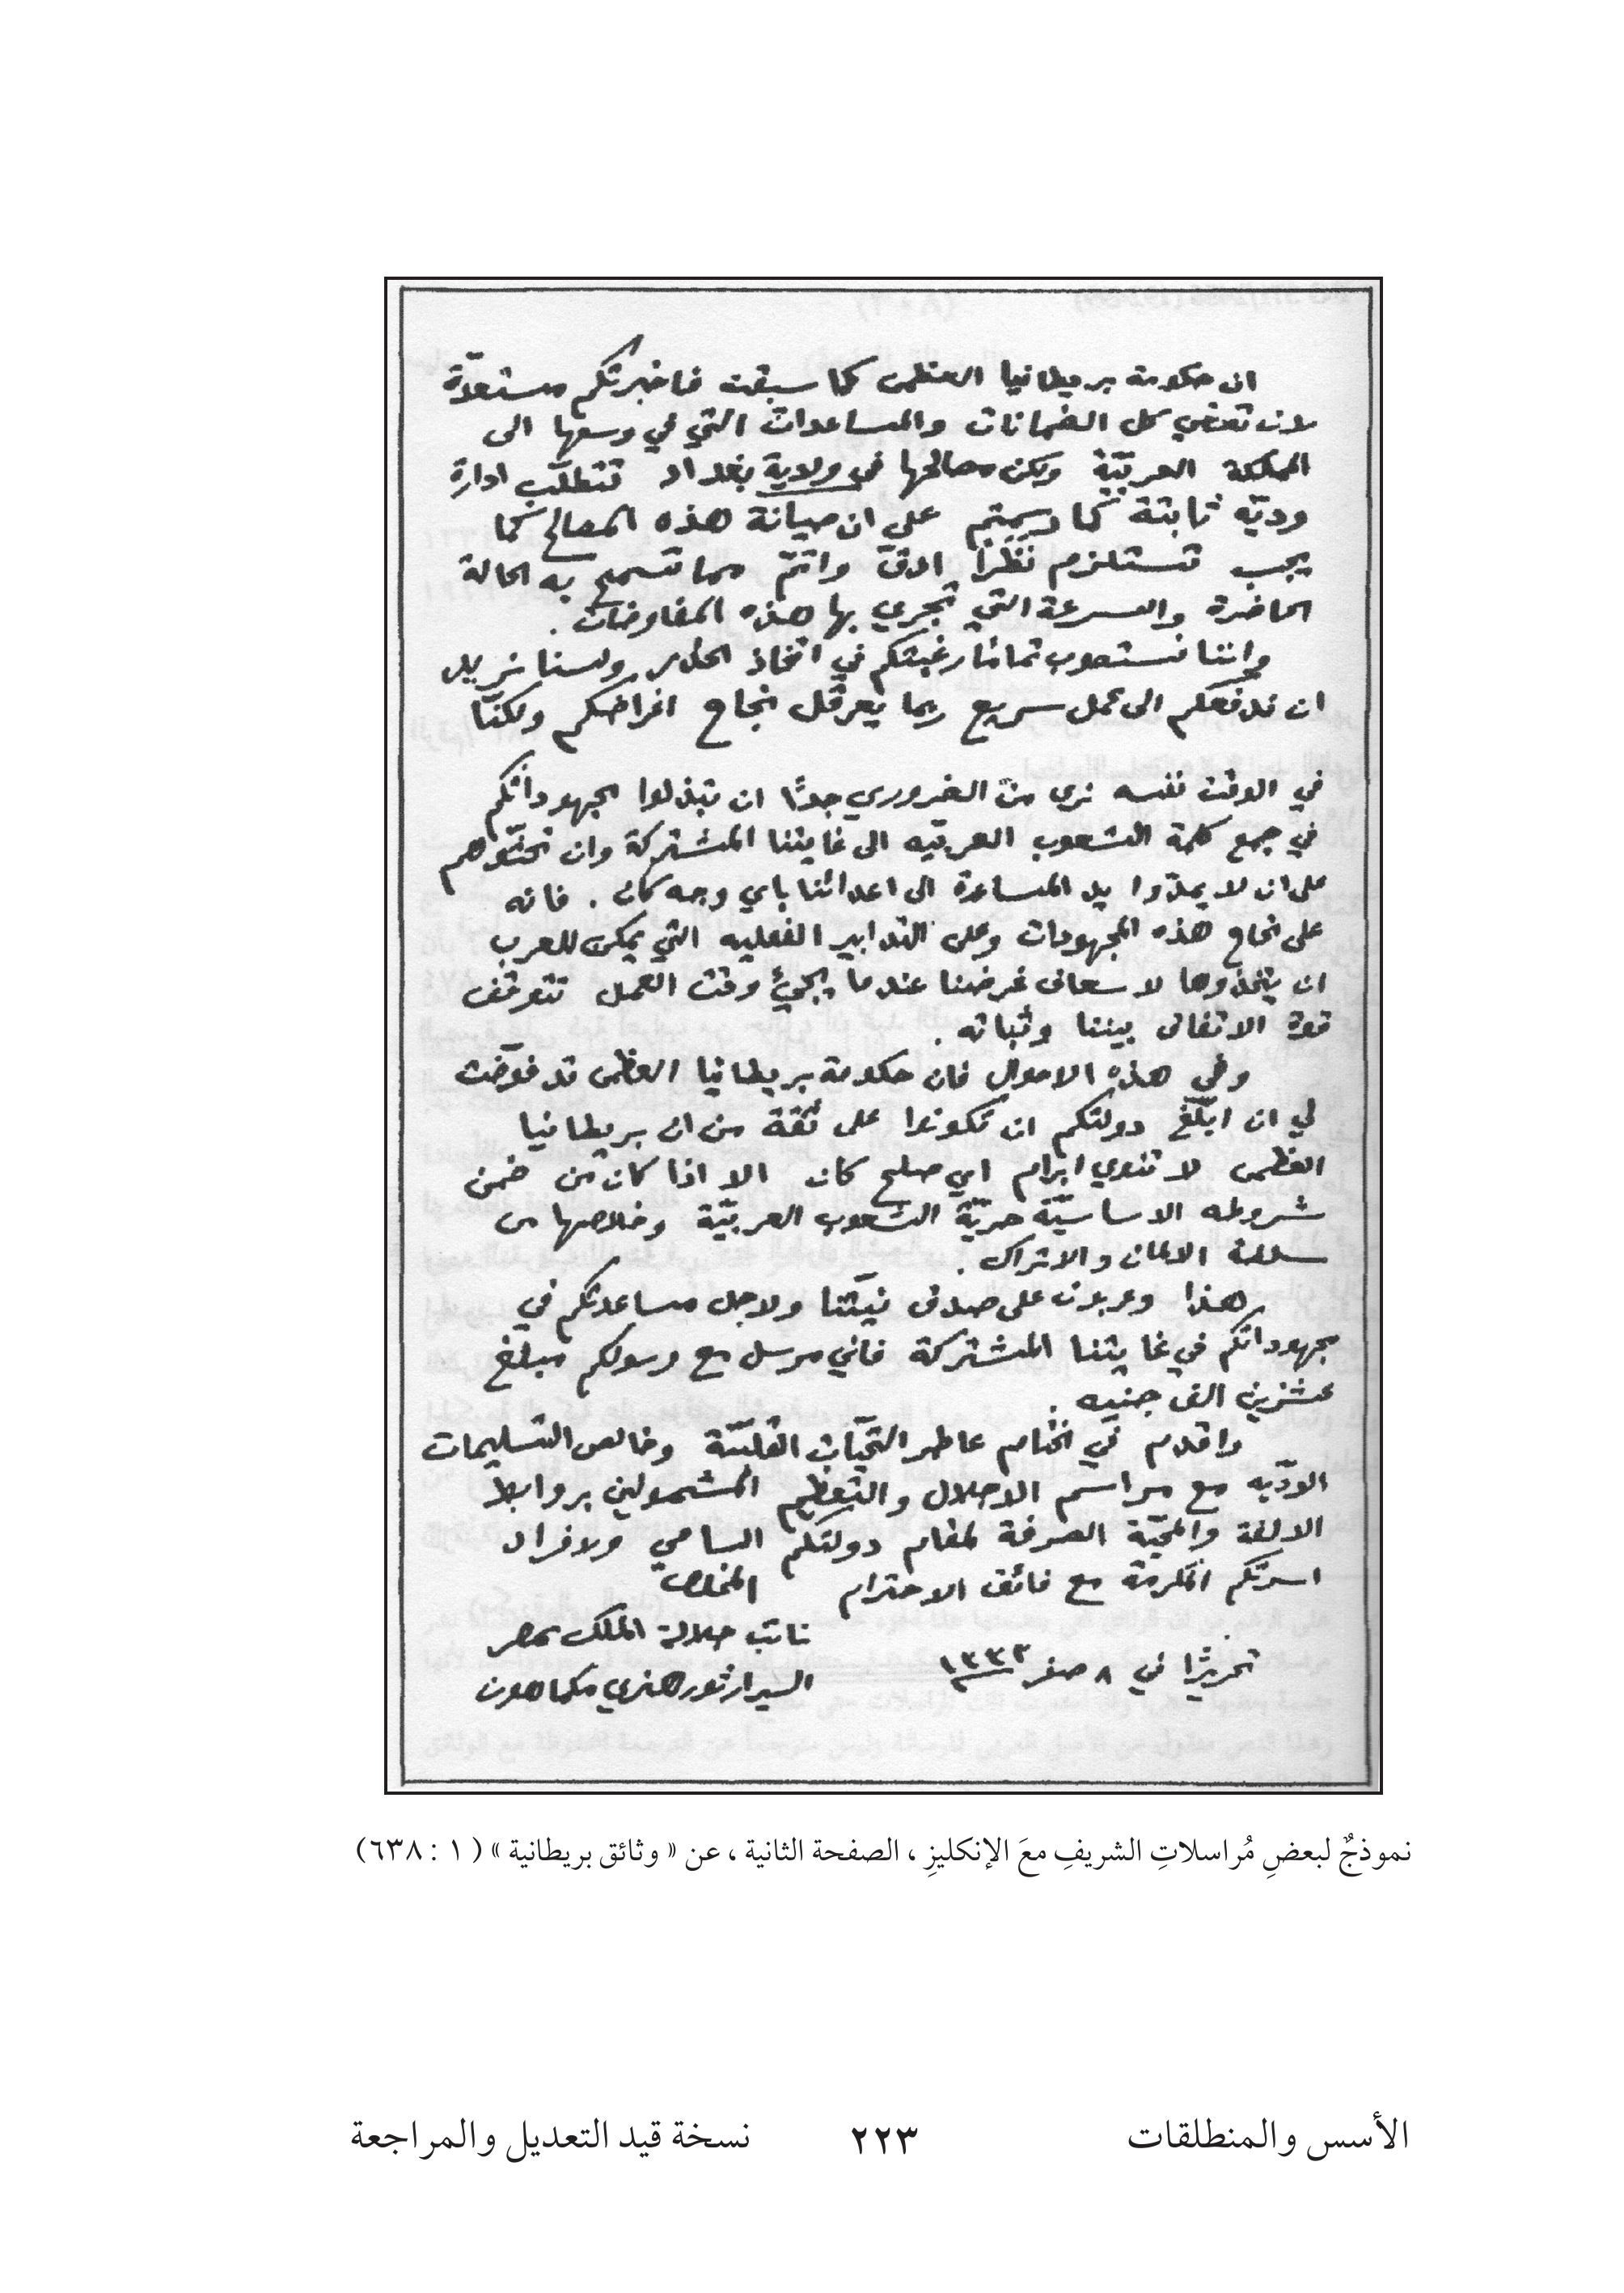 ان حكومة بريطانيا العظمى كما سبقت فاخبرتكم مستعدّة
لان تعطي كل الضمانات والمساعدات التي في وسعها الى
المملكة العربيّة ولكن مصالحها في ولاية بغداد تتطلّب ادارة
وديّه ثابتة كما رسمتم على ان صيانة هذه المصالح كما
يجب تستلزم نظرًا ادقّ واتمّ مما تسمح به الحالة
الحاضرة والسرعة التي تجري بها هذه المفاوضات .
واننا نستصوب تمامًا رغبتكم في اتخاذ الحذر ولسنا نريد
ان ندفعكم الى عمل سريع ربما يعرقل نجاح اغراضكم ولكنّا
في الوقت نفسه نرى منّ الضروري جدًّا ان تبذلوا مجهوداتكم
في جمع كلمة الشعوب العربيّه الى غايتنا المشتركة وان تحثّوهم
على ان لا يمدّوا يد المساعدة الى اعدائنا باي وجه كان . فانه
على نجاح هذه المجهودات وعلى التدابير الفعليه التي يمكن للعرب
ان يتخذوها لاسعاف غرضنا عندما يجيئ وقت العمل تتوقف
قوة الاتفاق بيننا وثباته .
وفي هذه الاحوال فان حكومة بريطانيا العظمى قد فوّضت
لي ان ابلّغ دولتكم ان تكونوا على ثقة من ان بريطانيا
العظمى لا تنوي ابرام اي صلح كان الا اذا كان من ضمن
شروطه الاساسيّة حريّة الشعوب العربيّة وخلاصها من
سلطة الالمان والاتراك .
هذا وعربون على صدق نيّتنا ولاجل مساعدتكم في
مجهوداتكم في غايتنا المشتركة فاني مرسل مع رسولكم مبلغ
عشرين الف جنيه .
واقدم في الختام عاطر التحيّات القلبيّة وخالص التسليمات
الودّيه مع مراسم الاجلال والتعظيم المشمولين بروابط
الالفة والمحبّة الصرفة لمقام دولتكم السامي ولافراد
اسرتكم المكرمة مع فائق الاحترام المخلص
نائب جلالة الملك بمصر
تحريرًا في ٨ صفر ١٣٣٤
السير ارثور هنري مكماهون
نموذجٌ لبعضِ مُراسلاتِ الشريفِ معَ الإنكليزِ ، الصفحة الثانية ، عن « وثائق بريطانية » ( ١ : ٦٣٨)
الأسس والمنطلقات ٢٢٣ نسخة قيد التعديل والمراجعة